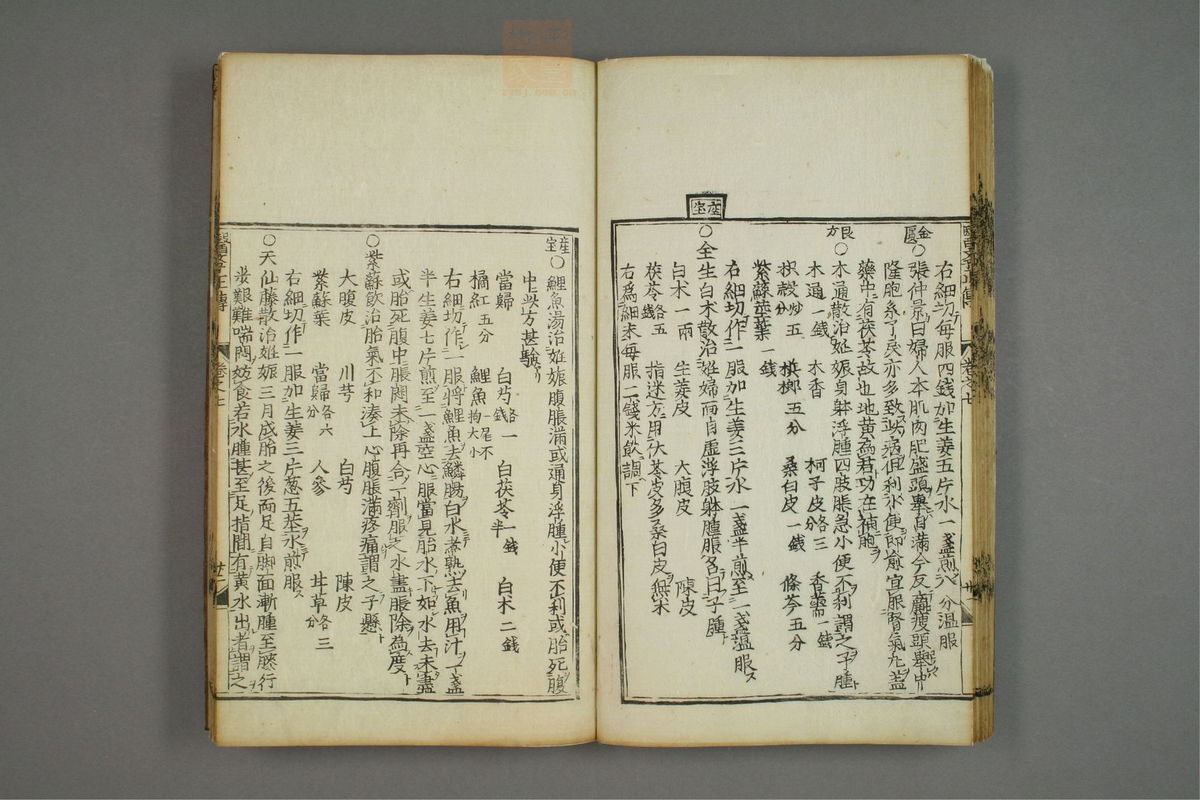 右細切每服四錢加生姜五片水一盞煎八分溫服
金匱
○張仲景曰婦人本肌肉肥盛頭舉自滿今反羸瘦頭舉中
隆胞系了戾亦多致此病但利水便即愈宜服腎氣丸盖
藥中有茯苓故也地黃為君功在補胞
良方
○木通散治姙娠身躰浮腫四肢脹急小便不利謂之子腫
木通一錢 木香 柯子皮各三分 香薷一錢
枳殼炒五分 檳榔五分 桑白皮一錢 條芩五分
紫蘇莖葉一錢
右細切作一服加生姜三片水一盞半煎至一盞溫服
産宝
○全生白朮散治姙婦面目虛浮肢躰腫脹名曰子腫
白朮一兩 生姜皮 大腹皮 陳皮
茯苓各五錢 指迷方用伏苓皮多桑白皮無朮
右爲細末每服二錢米飲調下
卷之七
産宝
○鯉魚湯治姙娠腹脹滿或通身浮腫小便不利或胎死腹
中此方甚驗
當歸 白芍各一錢 白茯苓一錢半 白朮二錢
橘紅五分 鯉魚一尾不拘大小
右細切作一服將鯉魚去鱗膓白水煮熟去魚用汁一盞
半生姜七片煎至一盞空心服當見胎水下如水去未盡
或胎死腹中脹悶未除再合一劑服之水盡脹除為度
○紫蘇飲治胎氣不和湊上心腹脹滿疼痛謂之子懸
大腹皮 川芎 白芍 陳皮
紫蘇葉 當歸各六分 人參 甘草各三分
右細切作一服加生姜三片葱五莖水煎服
○天仙藤散治姙娠三月成胎之後兩足自脚面漸腫至膝行
步艱難喘悶妨食若水腫甚至足指間有黃水出者謂之
醫學正傳
卷之七
廿二